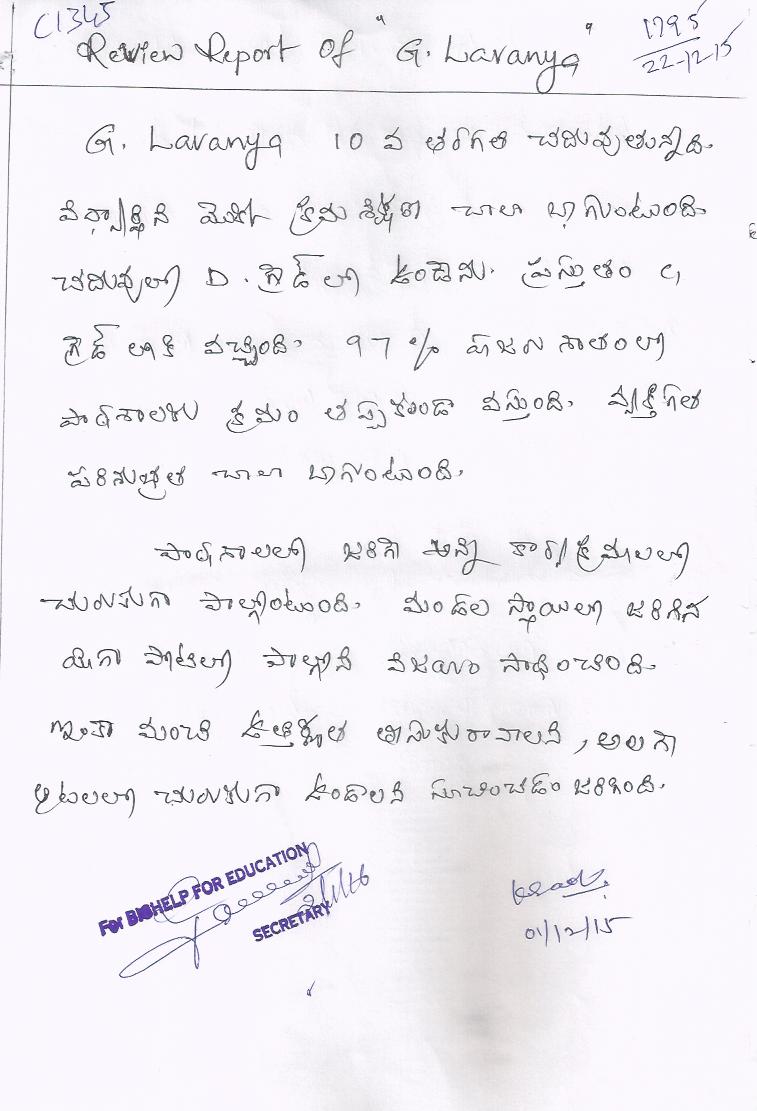 C1345
Review Report Of "G. Lavanya"
1795
22-12-15
G. Lavanya 10 వ తరగతి చదువుతున్నది.
విద్యార్థిని యొక్క క్రమశిక్షణ చాలా బాగుంటుంది.
చదువులో D. గ్రేడ్ లో ఉండెను. ప్రస్తుతం C1
గ్రేడ్ లోకి వచ్చింది. 97% హాజరు శాతంలో
పాఠశాలకు క్రమం తప్పకుండా వస్తుంది. వ్యక్తిగత
పరిశుభ్రత చాలా బాగుంటుంది.
పాఠశాలలో జరిగే అన్ని కార్యక్రమాలలో
చురుకుగా పాల్గొంటుంది. మండల స్థాయిలో జరిగిన
యోగా పోటీలో పాల్గొని విజయం సాధించింది.
ఇంకా మంచి ఉత్తీర్ణత తీసుకురావాలని, అలాగే
ఆటలలో చురుకుగా ఉండాలని సూచించడం జరిగింది.
For BIGHELP FOR EDUCATION
SECRETARY
01/12/15